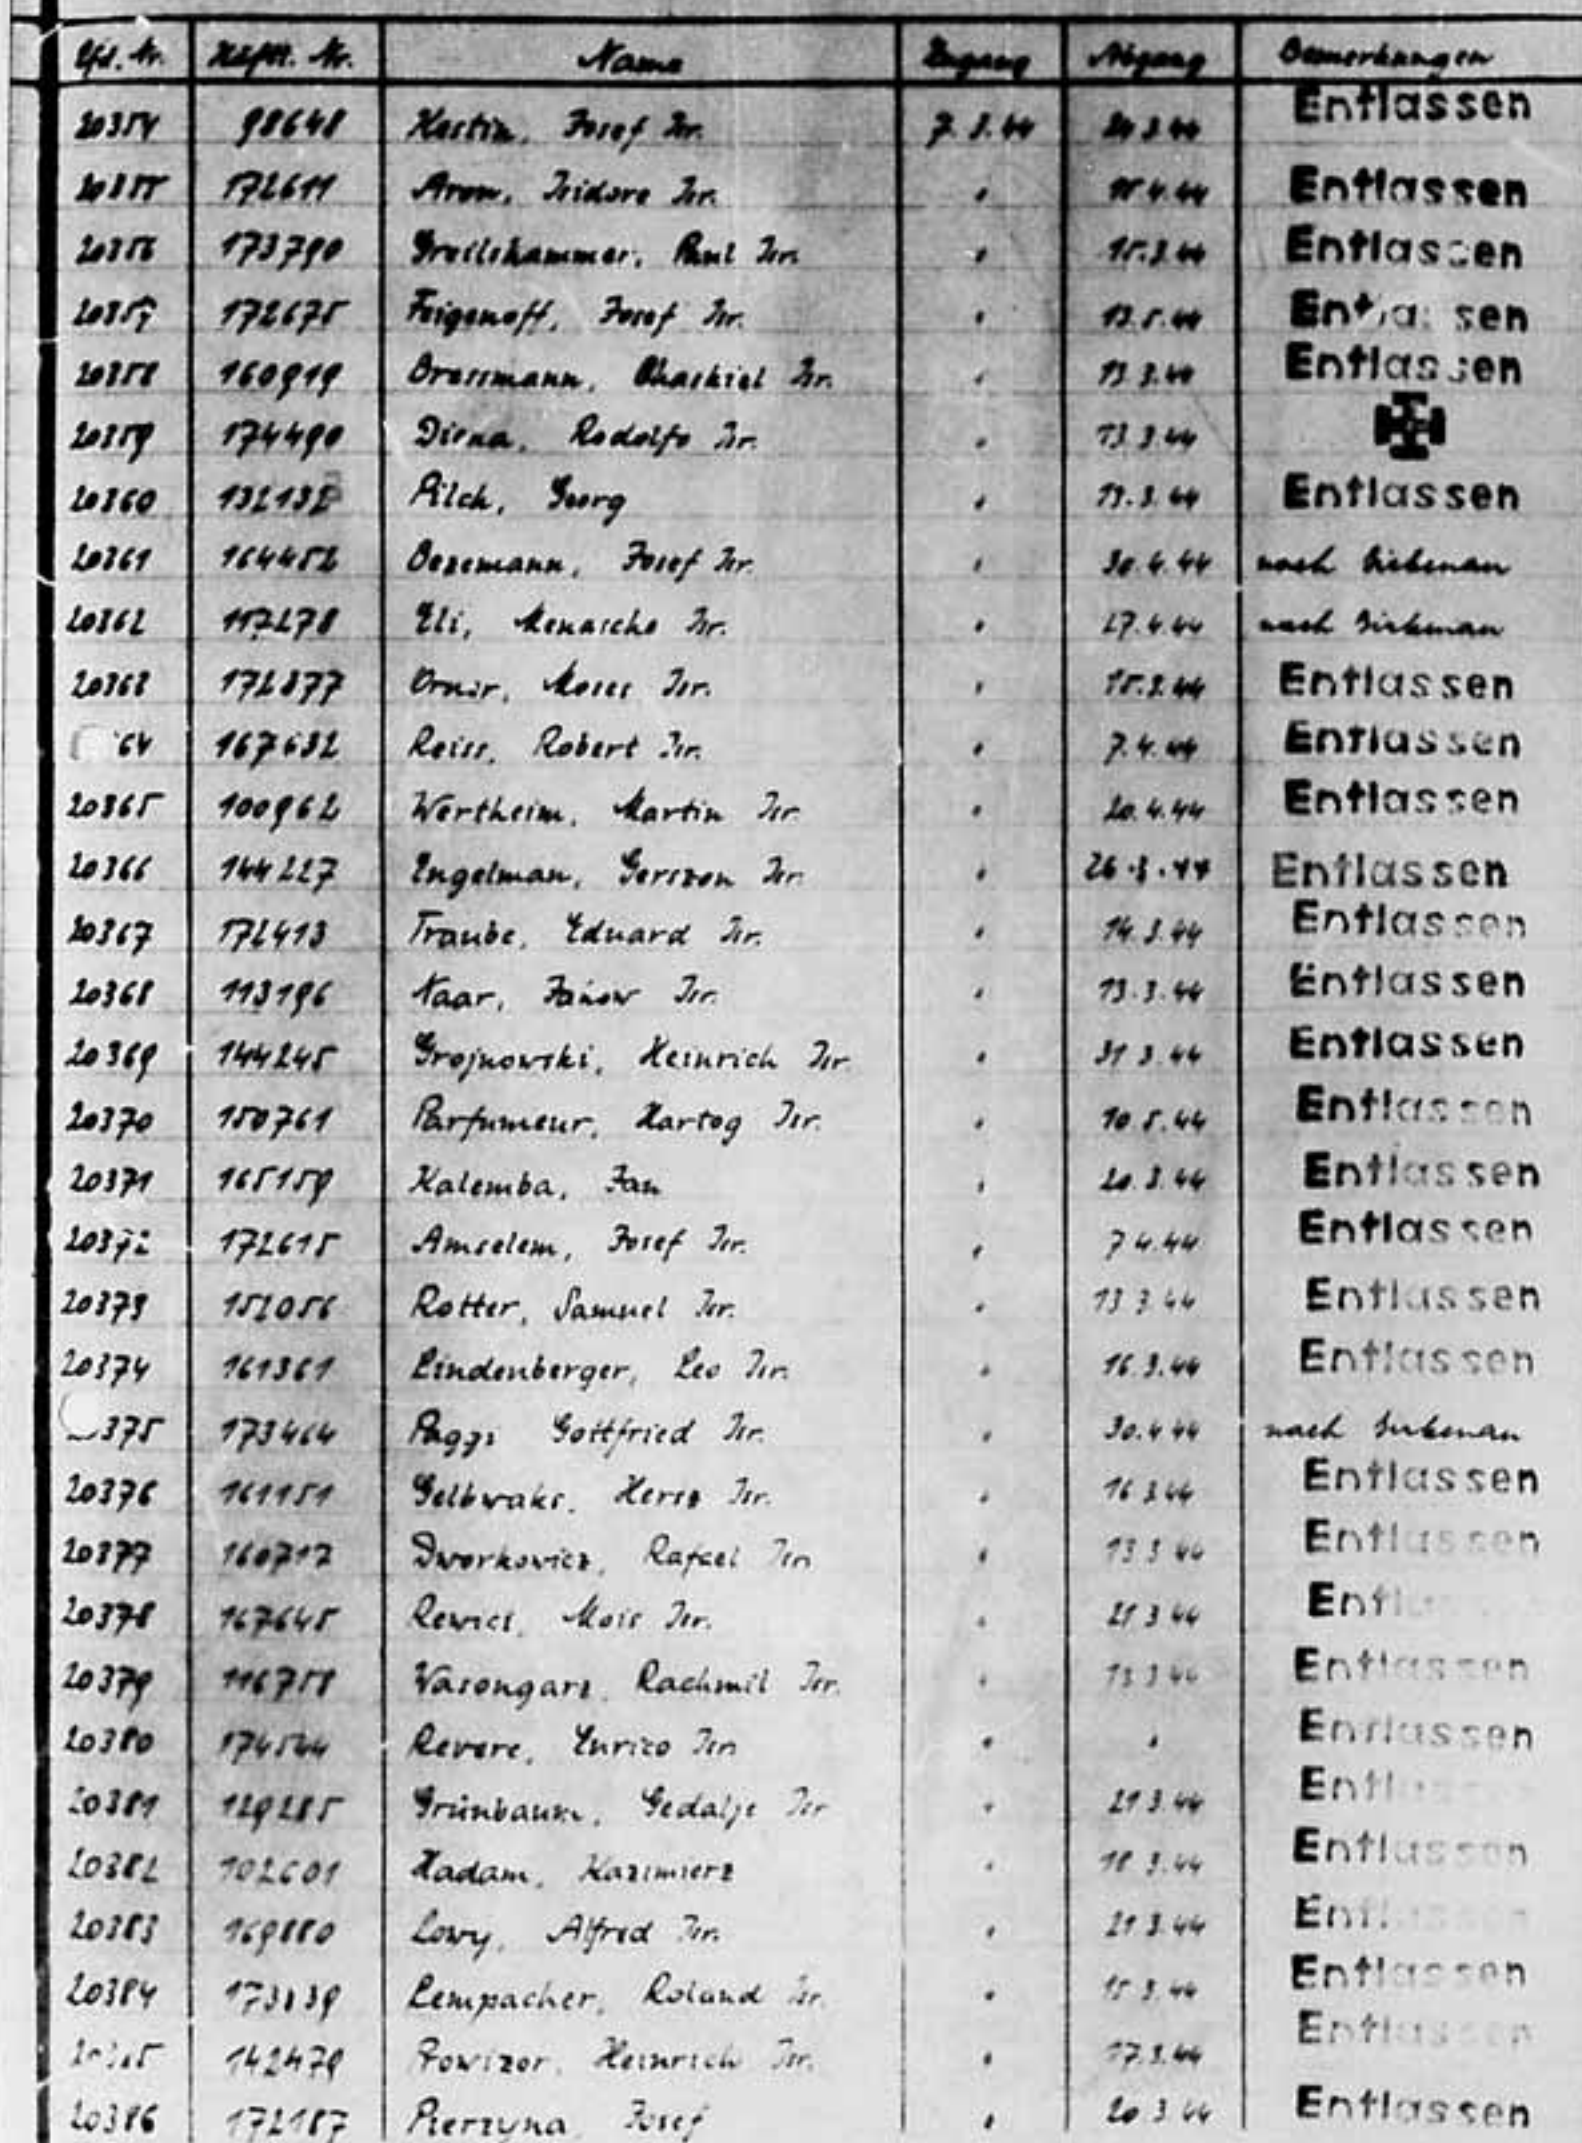 Lfd. Nr. Häftl. Nr. Name Zugang Abgang Bemerkungen
20354 98648 Josef Isr. 7.3.44 Entlassen
20355 172611 Aron, Isidore Isr. " Entlassen
20356 173790 Paul Isr. " 15.3.44 Entlassen
20357 172675 Feigenoff, Josef Isr. " 13.5.44 Entlassen
20358 160919 Isr. " 13.3.44 Entlassen
20359 174490 Diena, Rodolfo Isr. " 13.3.44
20360 Pilch, Georg " 13.3.44 Entlassen
20361 164452 Josef Isr. " 30.4.44 nach Birkenau
20362 117278 Eli, Menasche Isr. " 27.4.44 nach Birkenau
20363 172877 Moses Isr. " 15.3.44 Entlassen
64 167632 Reiss, Robert Isr. " 7.4.44 Entlassen
20365 100962 Wertheim, Martin Isr. " 20.4.44 Entlassen
20366 144227 Engelman, Gerszon Isr. " 26.3.44 Entlassen
20367 172413 Traube, Eduard Isr. " 14.3.44 Entlassen
20368 113196 Naar, Isr. " 13.3.44 Entlassen
20369 144245 Grojnowski, Heinrich Isr. " 31.3.44 Entlassen
20370 150761 Parfumeur, Hartog Isr. " 10.5.44 Entlassen
20371 165159 Kalemba, Jan " 20.3.44 Entlassen
20372 172615 Amselem, Josef Isr. " 7.4.44 Entlassen
20373 152056 Rotter, Samuel Isr. " 13.3.44 Entlassen
20374 161361 Lindenberger, Leo Isr. " 16.3.44 Entlassen
375 173464 Gottfried Isr. " 30.4.44 nach Birkenau
20376 161151 Gelbwaks, Hersz Isr. " 16.3.44 Entlassen
20377 Dworkowicz, Rafael Isr. " 13.3.44 Entlassen
20378 167645 Isr. " 21.3.44 Entl
20379 116758 Rachmil Isr. " 13.3.44 Entlassen
20380 174544 Revere, Enrico Isr. " " Entlassen
20381 129285 Grünbaum, Gedalje Isr. " 21.3.44 Entl
20382 102601 Kadam, Kazimierz " 18.3.44 Entlassen
20383 169880 Lowy, Alfred Isr. " 21.3.44 Entl
20384 173139 Lempacher, Roland Isr. " 15.3.44 Entlassen
142479 Prowizor, Heinrich Isr. " 17.3.44 Entlassen
20386 172187 Pierzyna Josef " 20.3.44 Entlassen